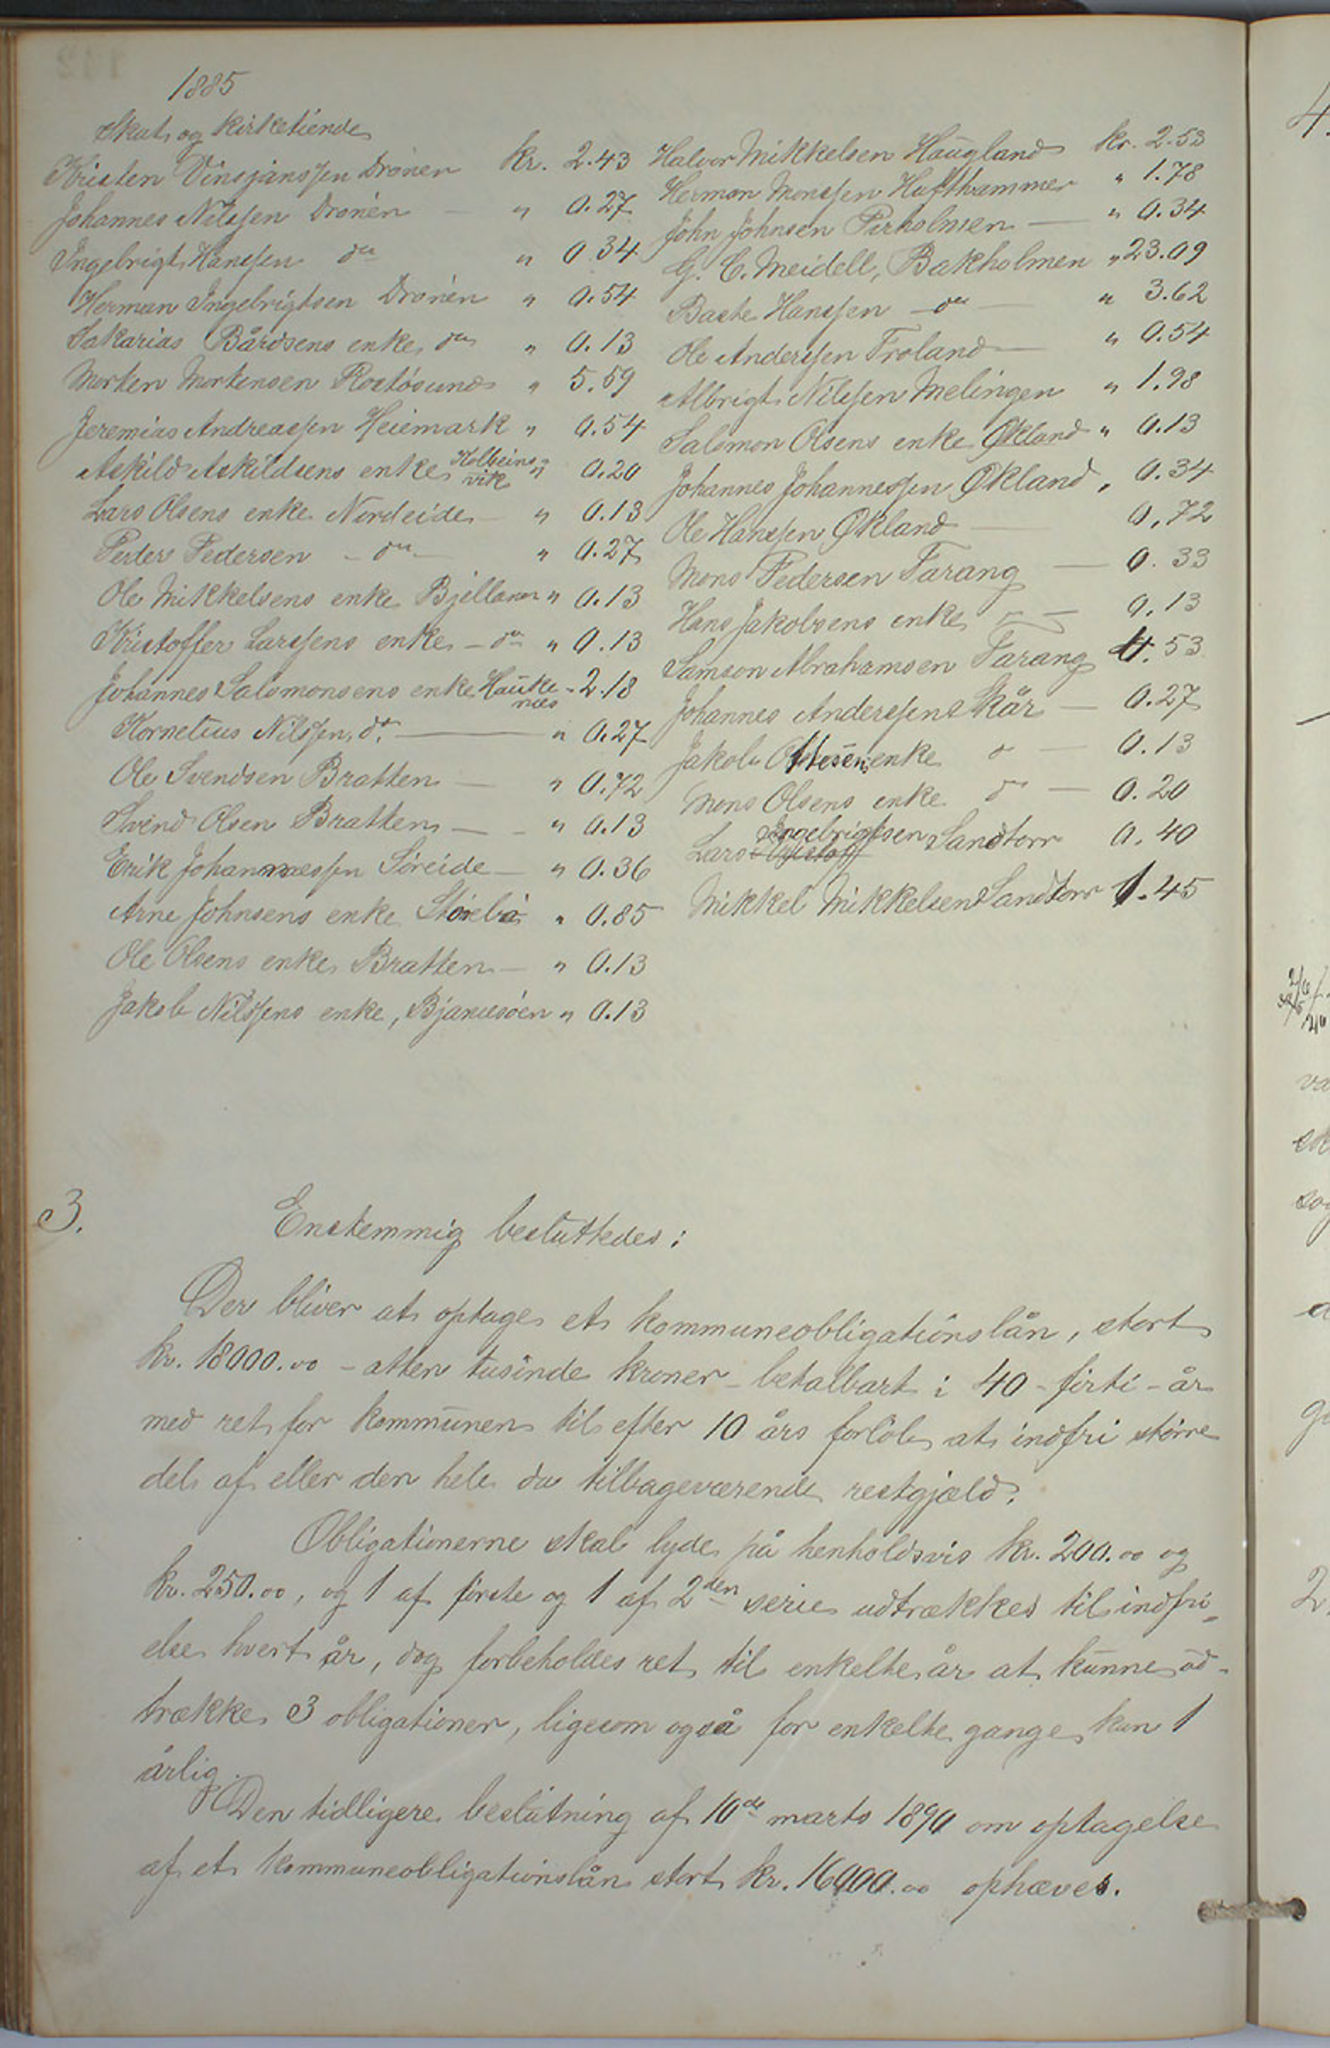 1885
Skat og Kirketiende
Kristen Vinsjanssen Drönen kr. 2.43
Johannes Nilssen Drönen — " 0.27
Ingebrigt Hanssen do " 0.34
Herman Ingebrigtsen Drönen " 0.54
Sakarias Bårdsens enke do " 0.13
Morten Mortensen Rostösund " 5.59
Jeremias Andreassen Heiemark " 0.54
Askild Askildsens enke Kolbeinsvik " 0.20
Lars Olsens enke Nordeide — " 0.13
Peder Pedersen — do — " 0.27
Ole Mikkelsens enke Bjelland " 0.13
Kristoffer Larssens enke — do " 0.13
Johannes Salomonsens enke Haukenæs - 2.18
Kornelius Nilssen, do. — " 0.27
Ole Svendsen Bratten — " 0.72
Svend Olsen Bratten — " 0.13
Erik Johannessen Söreide — " 0.36
Arne Johnsens enke Storebö " 0.85
Ole Olsens enke Bratten — " 0.13
Jakob Nilssens enke, Bjanesöen " 0.13
Halvor Mikkelsen Haugland kr. 2.53
Herman Monssen Hufthammer " 1.78
John Johnsen Perholmen — " 0.34
G. C. Meidell, Bakholmen " 23.09
Baste Hanssen — do — " 3.62
Ole Anderssen Froland — " 0.54
Albrigt Nilssen Melingen " 1.98
Salomon Olsens enke Økland " 0.13
Johannes Johannessen Økland, 0.34
Ole Hanssen Økland — 0,72
Mons Pedersen Tarang — 0.33
Hans Jakobsens enke do — 0.13
Samson Abrahamsen Tarang 4.53
Johannes Anderssen Skår — 0.27
Jakob enke do — 0.13
Mons Olsens enke do — 0.20
Lars Ingebrigtsen Sandtorv 0.40
Mikkel Mikkelsen Sandtorv 1.45
3. Enstemmig besluttedes:
Der bliver at optage et kommuneobligationslån, stort
kr. 18000.00 - atten tusinde kroner - betalbart i 40 - förti - år
med ret for kommunen til efter 10 års forlöb at indfri större
del af eller den hele da tilbageværende restgjæld.
Obligationerne skal lyde på henholdsvis kr. 200.00 og
kr. 250.00, og 1 af förste og 1 af 2den serie udtrækkes til indfri-
else hvert år, dog forbeholdes ret til enkelte år at kunne ud-
trække 3 obligationer, ligesom også for enkelte gange kun 1
årlig.
Den tidligere beslutning af 10de marts 1890 om optagelse
af et kommuneobligationslån stort kr. 16000.00 ophæves.
4.
2.